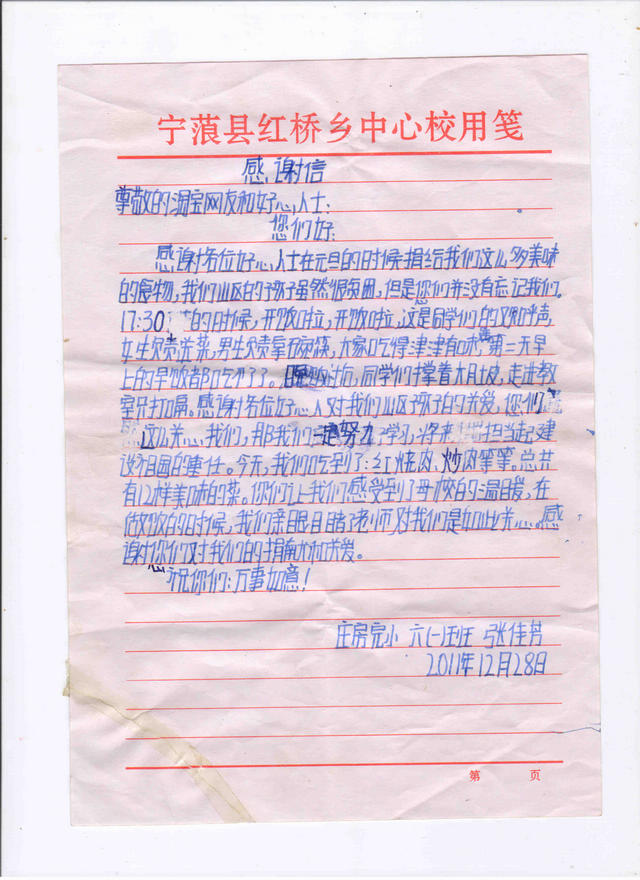 宁蒗县红桥乡中心校用笺
感谢信
尊敬的淘宝网友和好心人士:
您们好:
感谢各位好心人士在元旦的时候捐给我们这么多美味
的食物,我们山区的孩子虽然很贫困,但是您们并没有忘记我们。
17:30 的时候,开饭啦,开饭啦,这是同学们的欢呼声,
女生负责送菜,男生负责拿碗筷,大家吃得津津有味,第二天早
上的早饭都吃不了了。晚饭过后,同学们撑着大肚皮,走进教
室开打嗝。感谢各位好心人对我们山区孩子的关爱,您们
这么关心我们,那我们一定努力学习,将来担当起建
设祖国的重任。今天,我们吃到了:红烧肉、炒肉等等。总共
有12样美味的菜。你们让我们感受到了母校的温暖,在
做饭的时候,我们亲眼目睹老师对我们是如此关心。感
谢你们对我们的捐献和关爱。
祝你们:万事如意!
庄房完小 六(一)班 张佳芳
2011年12月28日
第 页